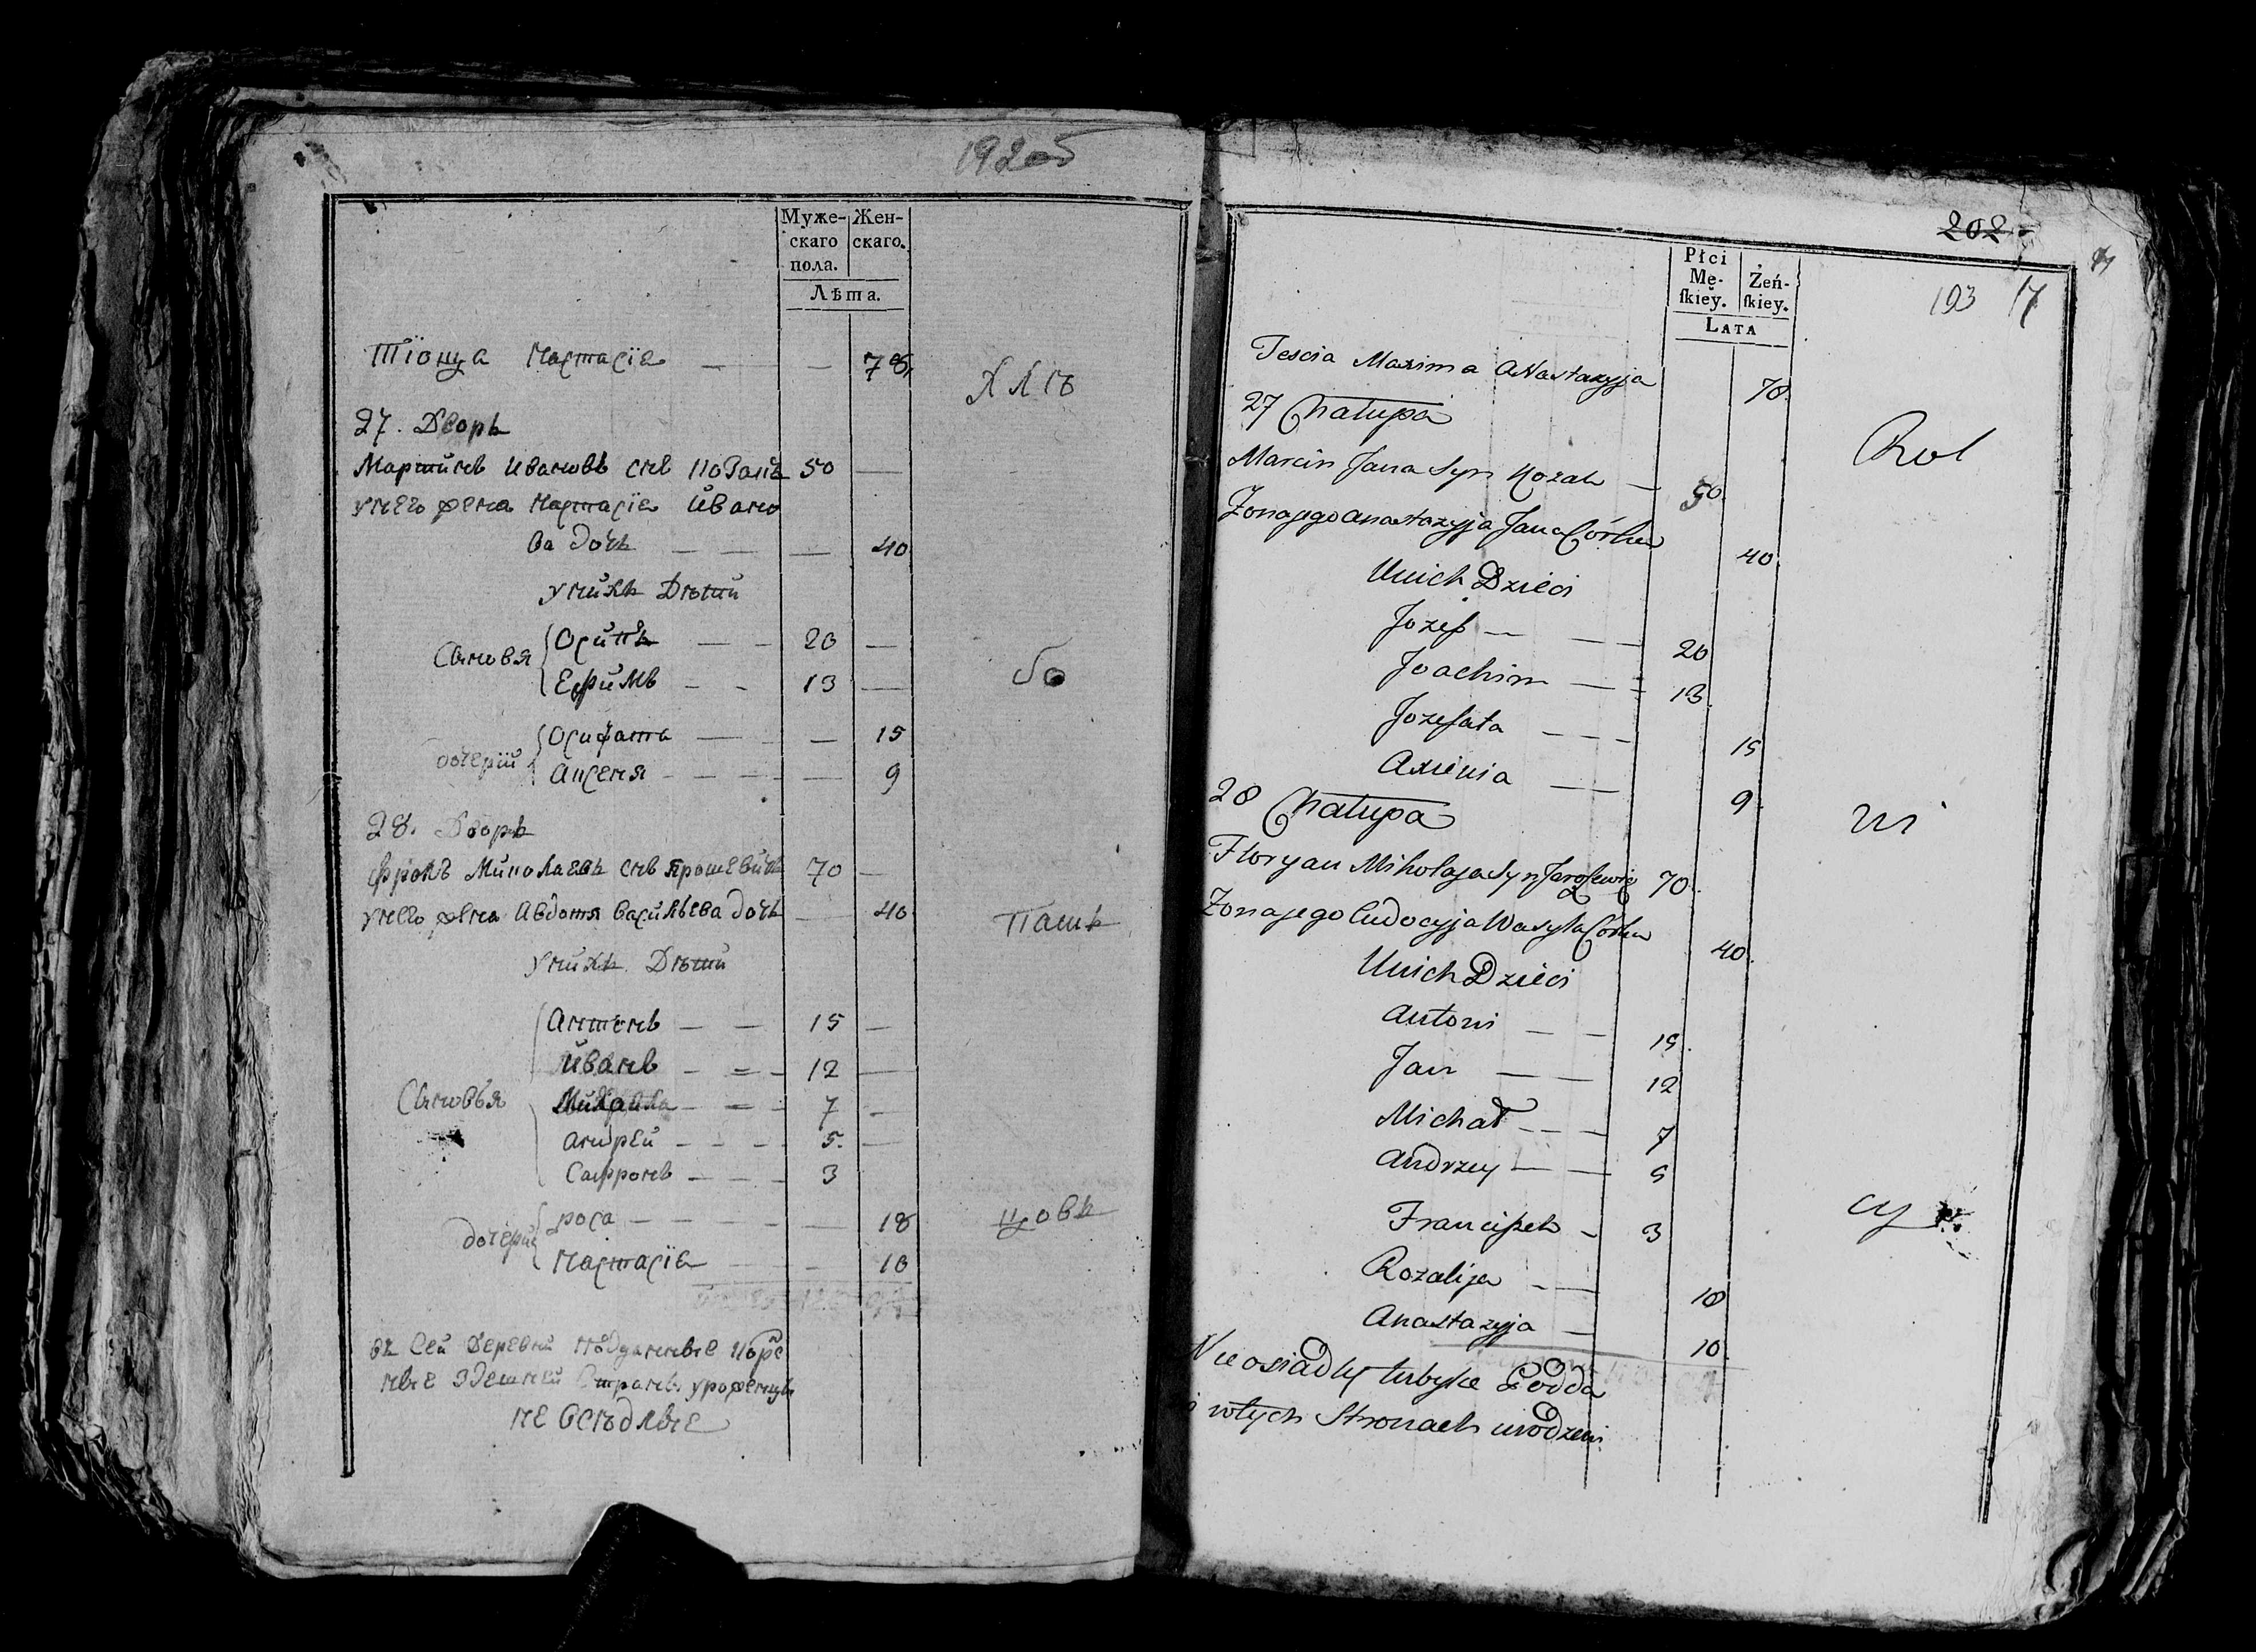 192об
Муже- Жен-
скаго скаго.
пола.
Лѣта.
тїоща Настасїя — — 78
ХЛѣ
27. Дворъ
Мартинъ Ивановъ снъ Козакъ 50 —
унего жена Настасїя Ивано
ва дочь — — — 40
унихъ Дѣти
Сыновя Осипъ — — 20 —
Ефимъ — — 13 —
бо
дочерїи Осифата — — — 15
Аксеня — — — — 9
28. Дворъ
Миколаевъ снъ Ярошевичъ 70 —
унего жена Авдотя Васильева дочь — 40
Пашъ
Унихъ Дѣти
Антонъ — — 15 —
Иванъ — — 12 —
Сыновья Михайла — — 7 —
Андрей — — — 5. —
Сафронъ — — — 3
дочерїи роса — — — — — 18
цовъ
Настасїя — — 10
въ Сей Деревни подданные Коре
ные здешней Страны уроженцы
не Оседлые
202
193 17
Płci
Mę- Żeń-
ſkiey. ſkiey.
LATA
Tescia Maxima Anastazyja 78.
27 Chałupa
Rol
Marcin Jana Syn Kozak — 50.
Zona jego Anastazyja Jana Córka 40.
Unich Dzieci
Jozef — — 20
Joachim — — 13.
Jozefata — — — 15
Axienia — — 9.
28 Chałupa
ni
Floryan Mikołaja Syn Jaroſzewic 70.
Zona jego Eudocyja Wasyla Córka 40.
Unich Dzieci
Antoni — — 15.
Jan — — 12
Michał — — — 7
Andrzey — — 5
Franciſzek — 3
cy
Rozalija — — 18
Anastazyja — 10.
Nieosiadły Podda
wtych Stronach urodzeni.